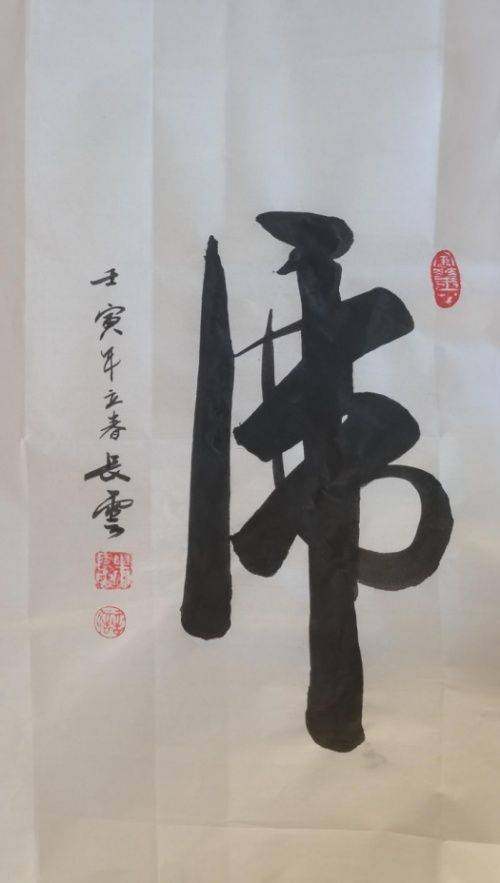 佛
壬寅年立春
長雲